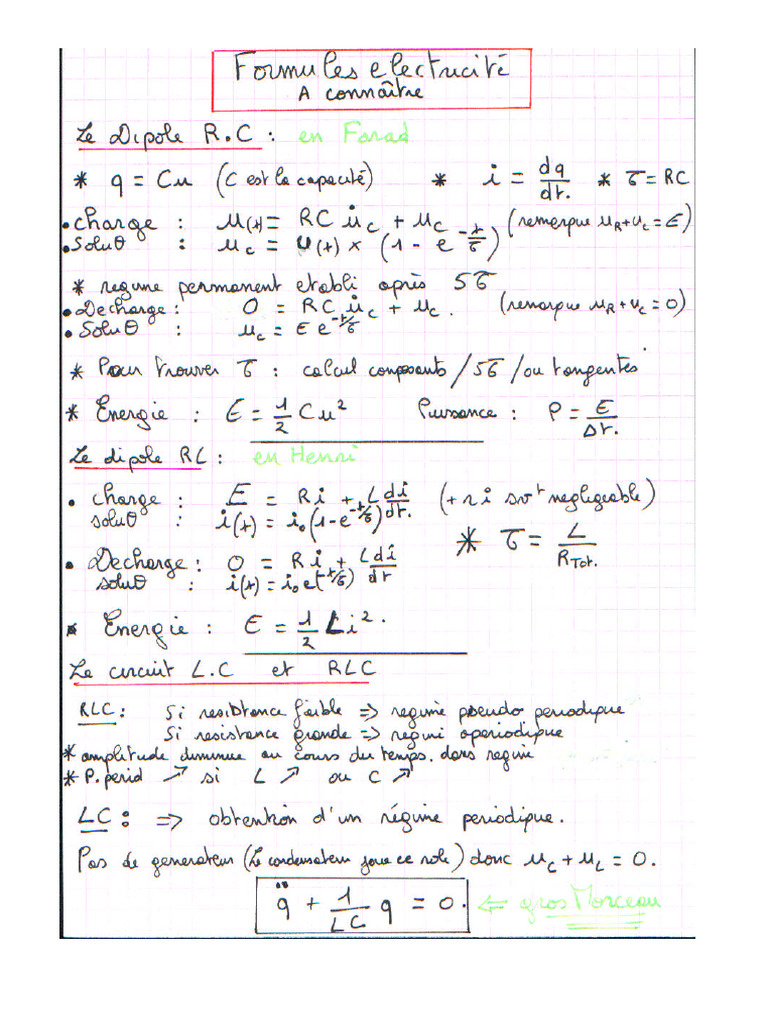 Formules electricité
A connaître
Le Dipole R.C : en Farad
* q = Cu (C est la capacité) * i = dq/dt. * τ = RC
• charge : u(t) = RC u̇c + uc (remarque uR + uc = E)
• Soluθ : uc = U(t) × (1 - e^(-t/τ))
* regime permanent etabli après 5τ
• Decharge : 0 = RC u̇c + uc. (remarque uR + uc = 0)
• Soluθ : uc = E e^(-t/τ)
* Pour trouver τ : calcul composants / 5τ / ou tangentes
* Energie : E = 1/2 Cu² Puissance : P = E/Δt.
Le dipole RL : en Henri
• charge : E = Ri + L di/dt. (+ ri svt negligeable)
soluθ : i(t) = i₀(1-e^(-t/τ))
* τ = L/R Tot.
• Decharge : 0 = Ri + L di/dt
soluθ : i(t) = i₀ e(-t/τ)
* Energie : E = 1/2 Li².
Le circuit L.C et RLC
RLC : Si resistance faible => regime pseudo periodique
Si resistance grande => regimi aperiodique
* amplitude diminue au cours du temps. dans regime
* P. period ↗ si L ↗ ou C ↗
LC : => obtention d'un régime periodique.
Pas de generateur (Le condensateur joue ce role) donc uc + uL = 0.
q̈ + 1/LC q = 0. <= gros Morceau